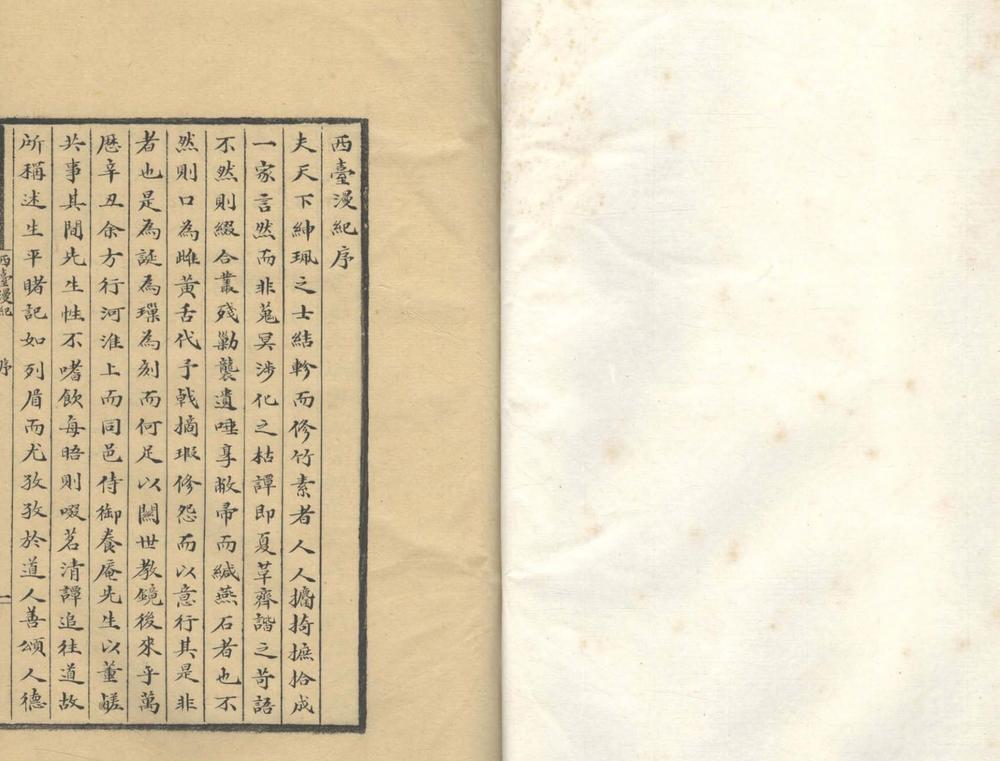 西臺漫紀序
夫天下紳珮之士結軫而修竹素者人人擿掎摭拾成
一家言然而非蒐冥涉化之枯譚即夏革齊諧之竒語
不然則綴合叢殘勦襲遺唾享敝帚而緘燕石者也不
然則口為雌黃舌代予戟摘瑕修怨而以意行其是非
者也是為誕為璅為刻而何足以關世教鏡後來乎萬
歷辛丑余方行河淮上而同邑侍御養庵先生以董鹺
共事其間先生性不嗜飲每晤則啜茗清譚追往道故
所稱述生平睹記如列眉而尤孜孜於道人善頌人德
西臺漫紀
序
一